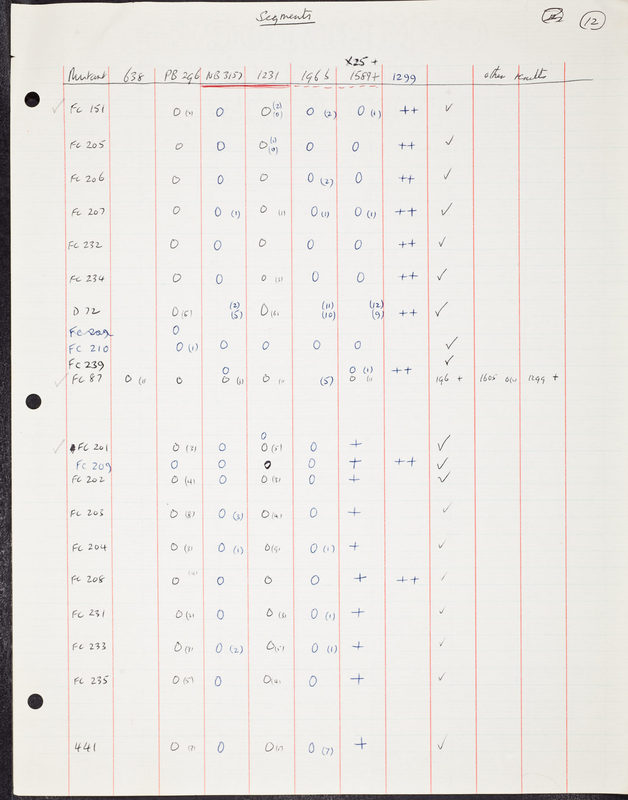 Segments
12
X25 +
Mutant 638 PB 296 NB 3157 1231 196 b 1589+ 1299 other results
✓ FC 151 0 0 0 (2) (0) 0 (2) 0 (1) ++ ✓
FC 205 0 0 0 (0) 0 0 ++ ✓
FC 206 0 0 0 0 (2) 0 ++ ✓
FC 207 0 0 (1) 0 (1) 0 (1) 0 (1) ++ ✓
FC 232 0 0 0 0 0 ++ ✓
FC 234 0 0 0 0 0 ++ ✓
D 72 0 (5) (2) (5) 0 (6) (11) (10) (12) (9) ++ ✓
0
FC 210 0 (1) 0 0 0 0 ✓
FC 239 0 0 (1) ++ ✓
✓ FC 87 0 (1) 0 0 0 (5) 0 196 + 1605 0 1299 +
0
✓ FC 201 0 (2) 0 0 (5) 0 + ✓
FC 209 0 0 0 0 + ++ ✓
FC 202 0 (4) 0 0 (3) 0 + ✓
FC 203 0 (8) 0 (3) 0 (4) 0 + ✓
FC 204 0 (3) 0 (1) 0 (5) 0 (1) + ✓
FC 208 0 0 0 0 + ++ ✓
FC 231 0 (2) 0 0 (3) 0 (1) + ✓
FC 233 0 0 (2) 0 0 (1) + ✓
FC 235 0 (5) 0 0 (4) 0 + ✓
441 0 0 0 0 (7) + ✓